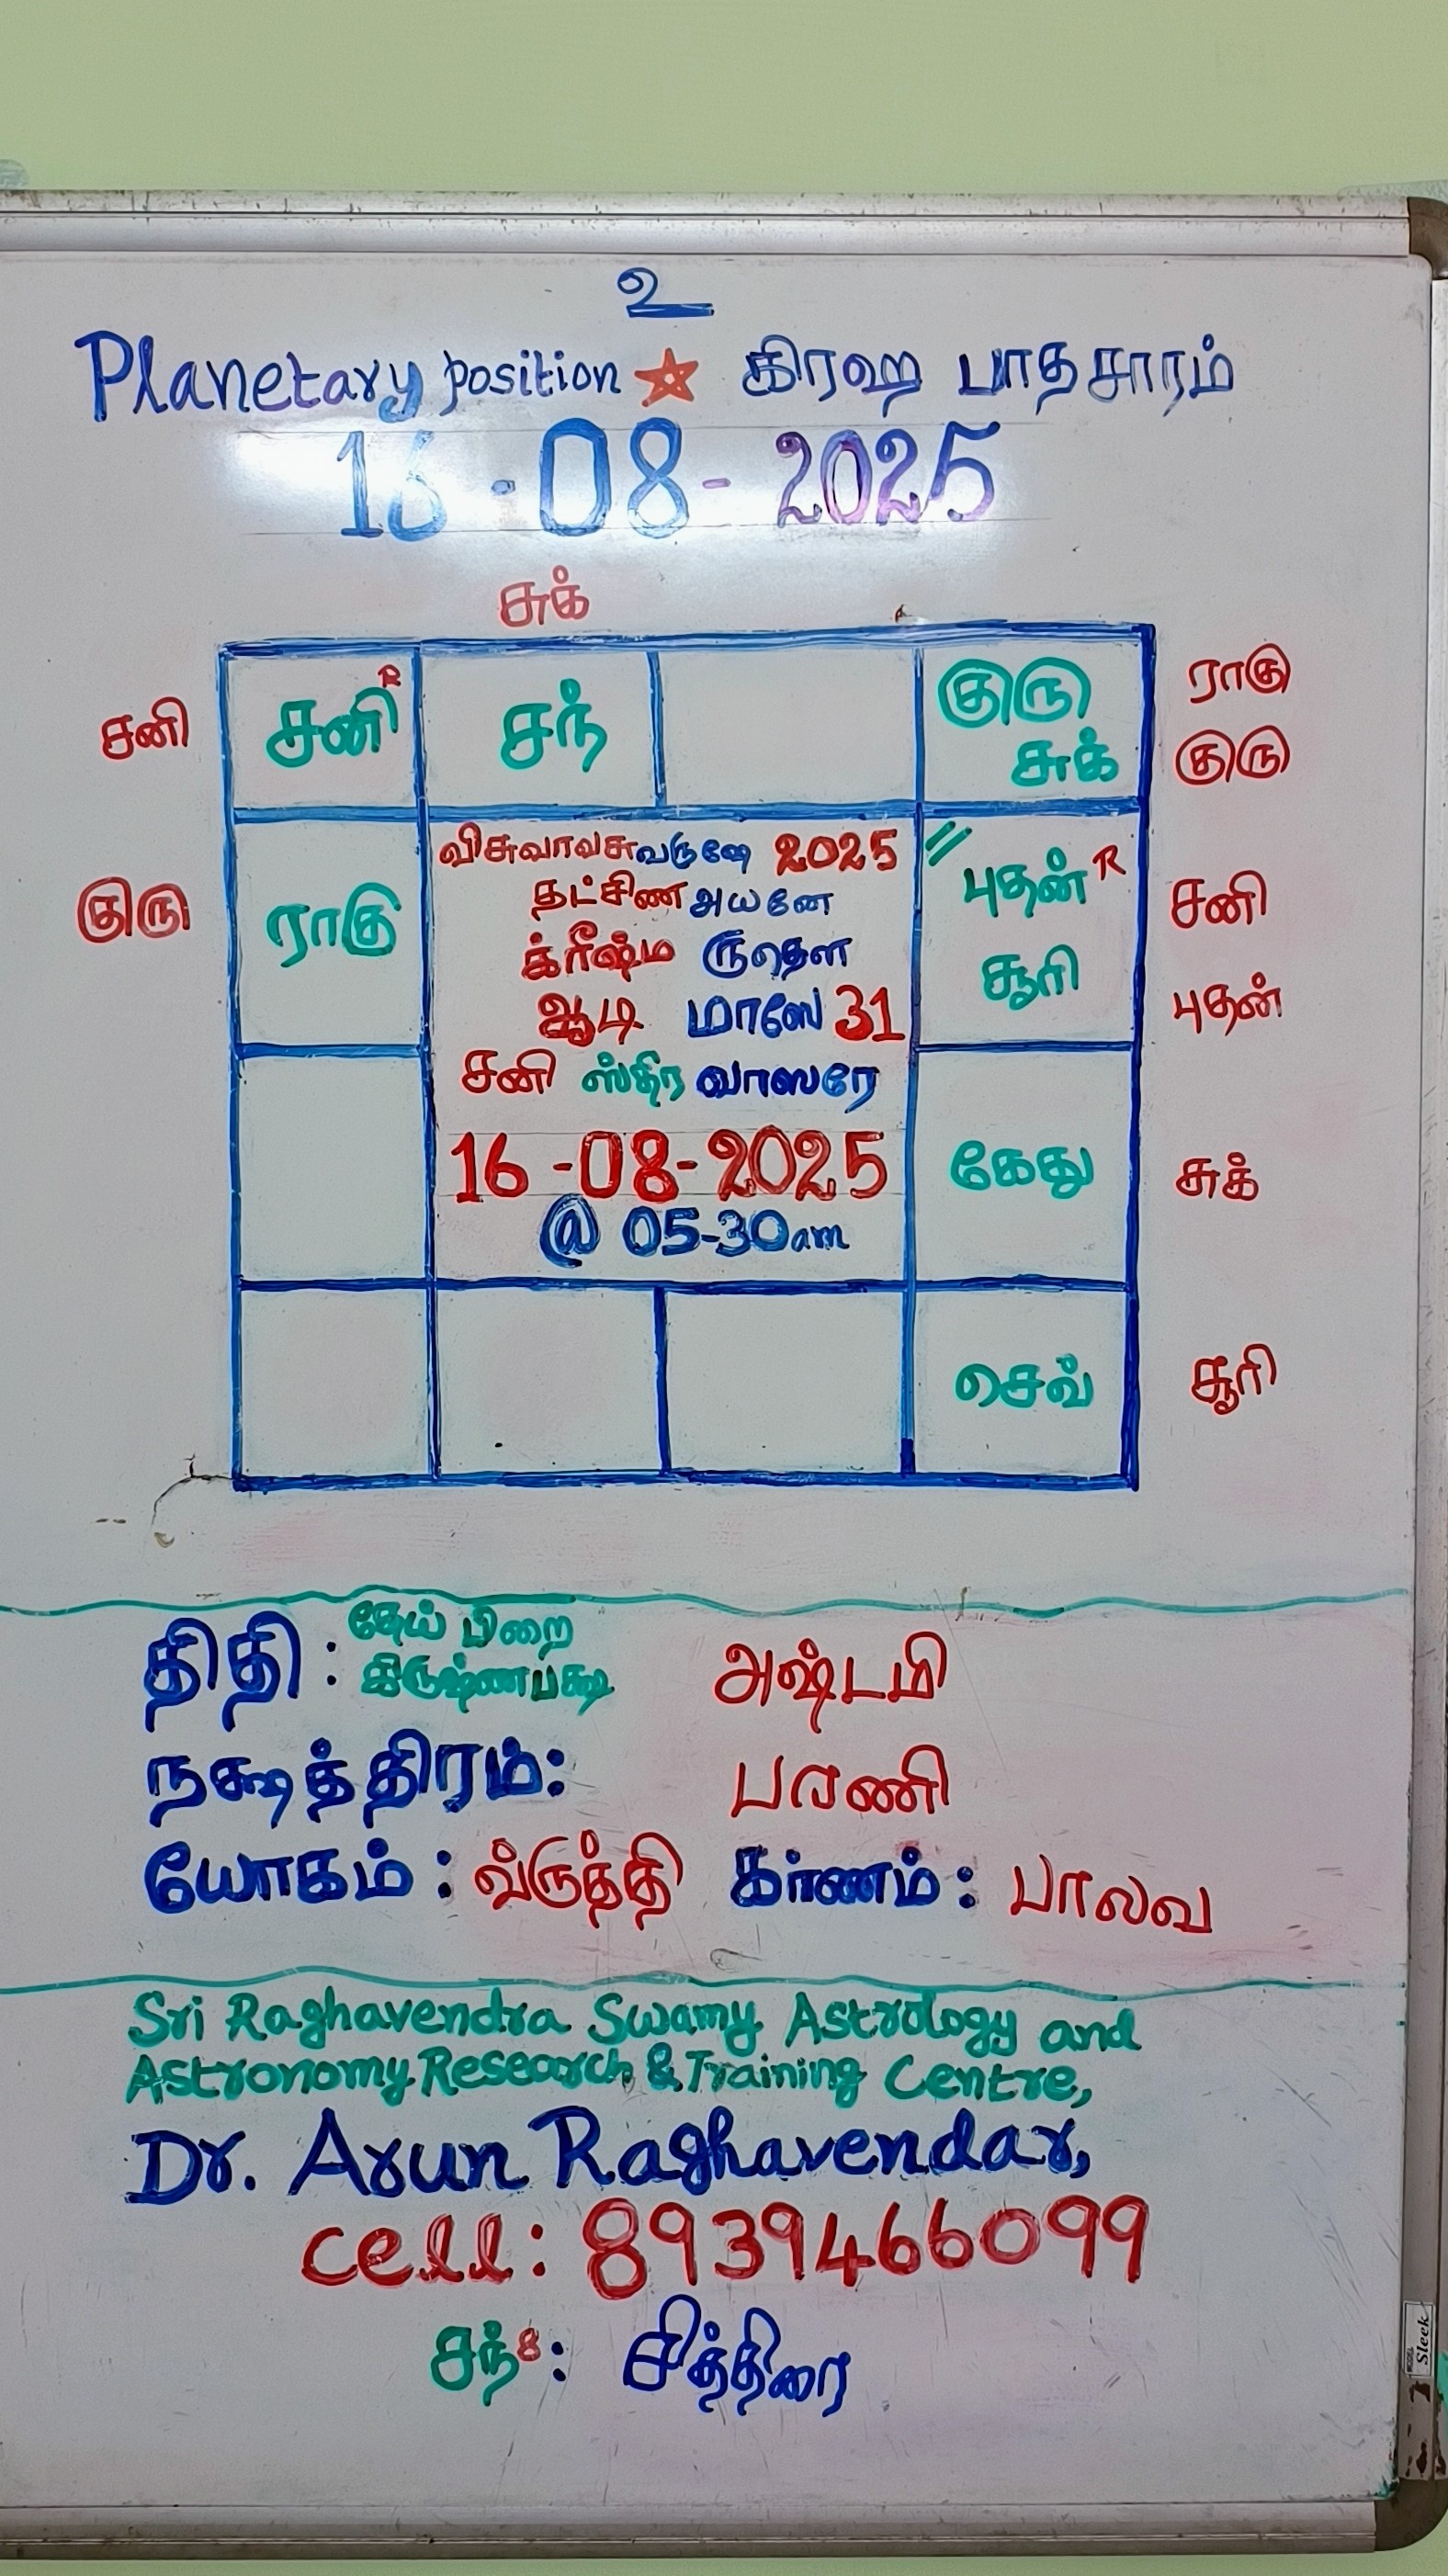 உ
Planetary position ☆ கிரஹ பாதசாரம்
16-08-2025
சுக்
சனி சனி R சந் குரு சுக் ராகு குரு
குரு ராகு புதன் R சூரி சனி புதன்
விசுவாவசுவருஷே 2025
தட்சிண அயனே
க்ரீஷ்ம ருதௌ
ஆடி மாஸே 31
சனி ஸ்திர வாஸரே
16-08-2025
@ 05-30am
கேது சுக்
செவ் சூரி
திதி: தேய் பிறை கிருஷ்ணபக்ஷ அஷ்டமி
நக்ஷத்திரம்: பரணி
யோகம்: வ்ருத்தி கர்ணம்: பாலவ
Sri Raghavendra Swamy Astrology and
Astronomy Research & Training Centre,
Dr. Arun Raghavendar,
cell: 8939466099
சந்8: சித்திரை
Sleek